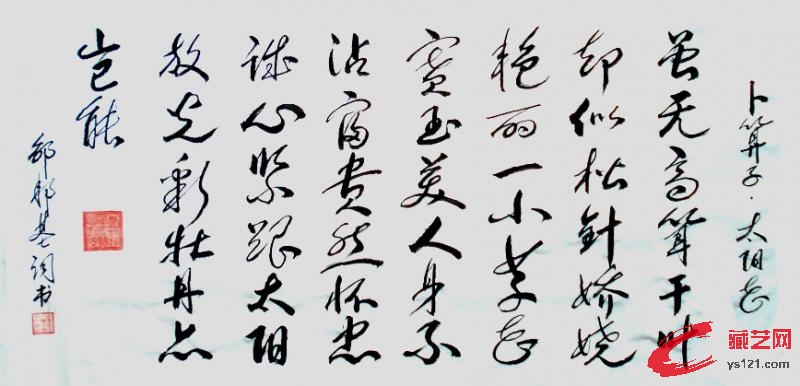 卜算子·太阳花
虽无高耸干叶
却似松針娇娆
艳丽一小草花
宝玉美人身不
沾富贵然怀忠
诚心紧跟太阳
放光彩牡丹亦
岂能
基词书
藏艺网
ys121.com